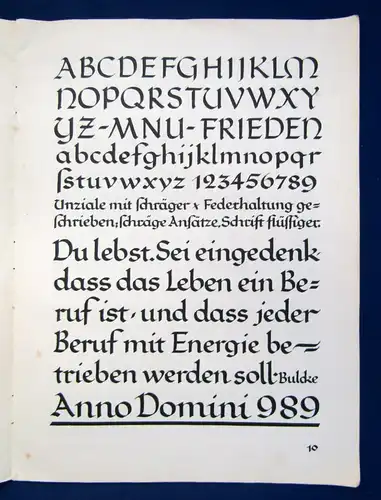 ABCDEFGHIJKLM
NOPQRSTUVWXY
YZ-MNU-FRIEDEN
abcdefghijklmnopqr
ſstuvwxyz 123456789
Unziale mit ſchräger Federhaltung ge-
ſchrieben; ſchräge Anſätze, Schrift flüſſiger.
Du lebst. Sei eingedenk
dass das Leben ein Be-
ruf ist, und dass jeder
Beruf mit Energie be-
trieben werden soll-Bulcke
Anno Domini 989
10